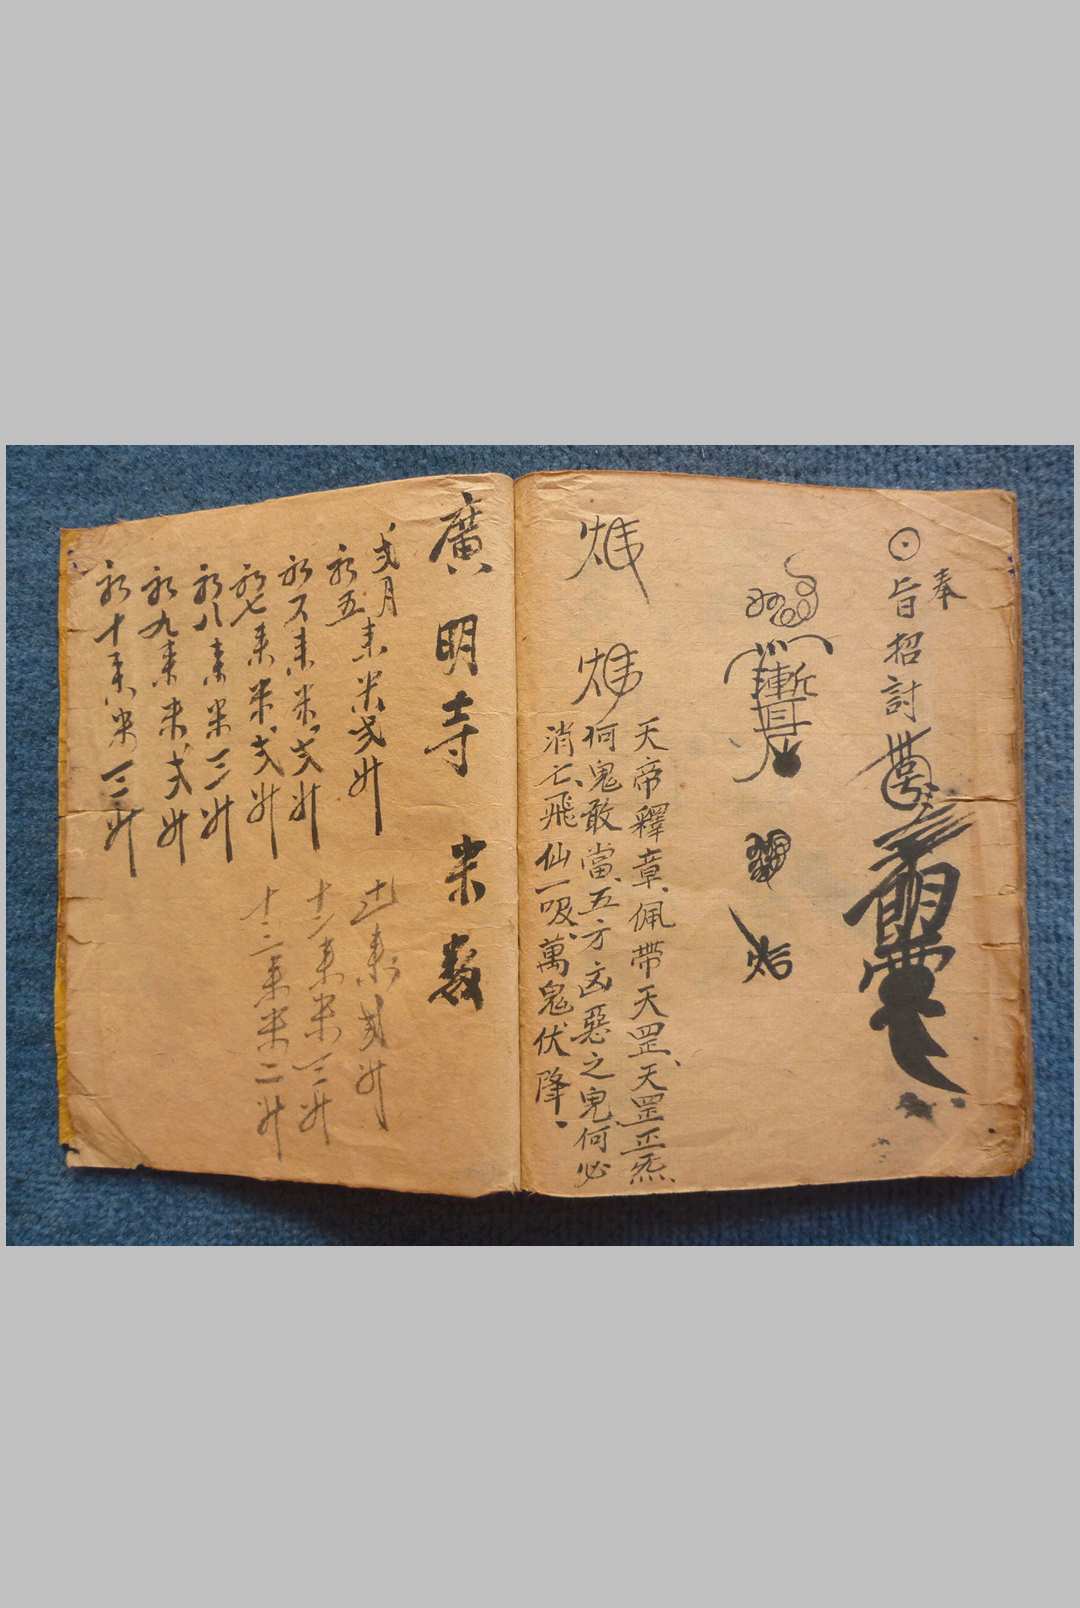 奉
旨招討
天帝釋章、佩帶天罡、天罡正炁
何鬼敢當、五方凶惡之鬼、何必
消亡、飛仙一吸、萬鬼伏降、
廣明寺 米数
弍月
初五来米弍升
初六来米弍升
初七来米弍升
初八来米三升
初九来米弍升
初十来米三升
十一来弍升
十二来米三升
十三来米二升